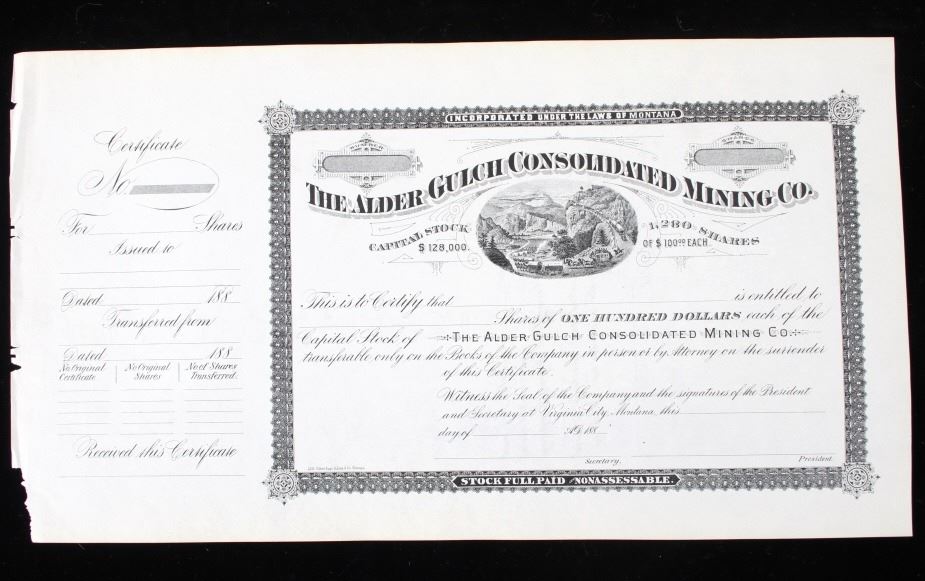 Certificate
No
For Shares
Issued to
Dated 188
Transferred from
Dated 188
No Original Certificate
No Original Shares
No of Shares Transferred.
Received this Certificate
INCORPORATED UNDER THE LAWS OF MONTANA
NUMBER
SHARES
THE ALDER GULCH CONSOLIDATED MINING CO.
CAPITAL STOCK
$ 128,000.
1,280 SHARES
OF $ 100.00 EACH
This is to Certify that is entitled to
Shares of ONE HUNDRED DOLLARS each of the
Capital Stock of THE ALDER GULCH CONSOLIDATED MINING CO.
transferable only on the Books of the Company in person or by Attorney on the surrender
of this Certificate.
Witness the Seal of the Company and the signatures of the President
and Secretary at Virginia City, Montana, this
day of AD 188
Secretary.
President.
STOCK FULL PAID AND NONASSESSABLE.